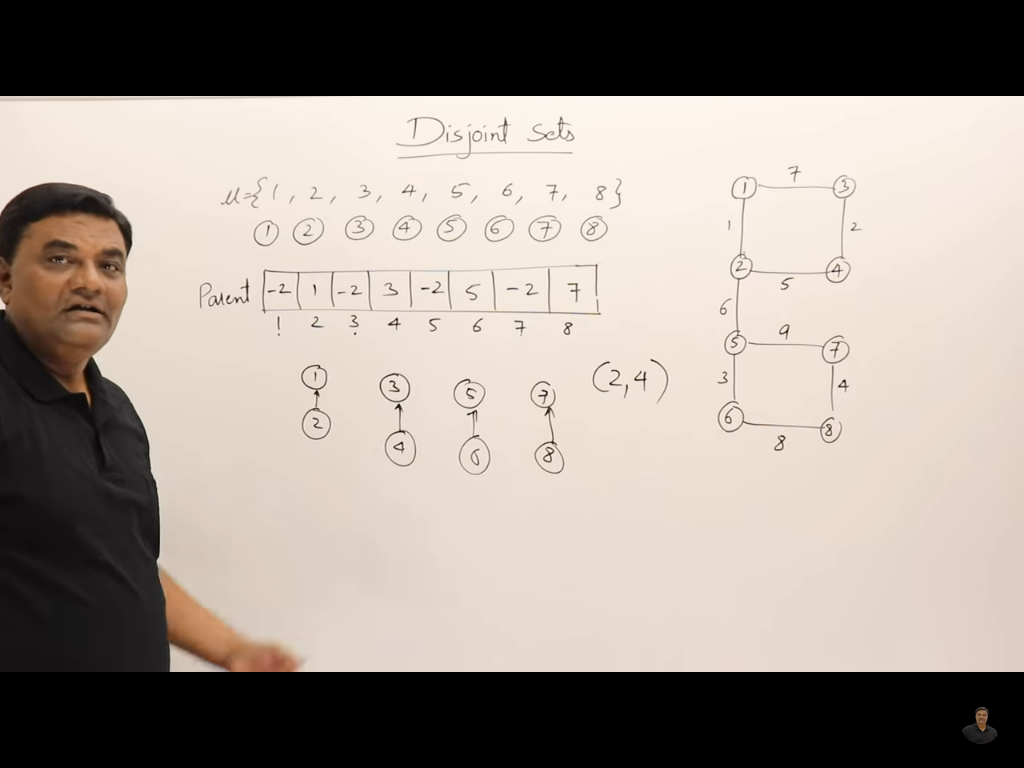 Disjoint Sets
U={1, 2, 3, 4, 5, 6, 7, 8}
1 2 3 4 5 6 7 8
Parent -2 1 -2 3 -2 5 -2 7
1 2 3 4 5 6 7 8
1 3 5 7 (2,4)
2 4 6 8
1 7 3
1 2
2 5 4
6
5 9 7
3 4
6 8 8